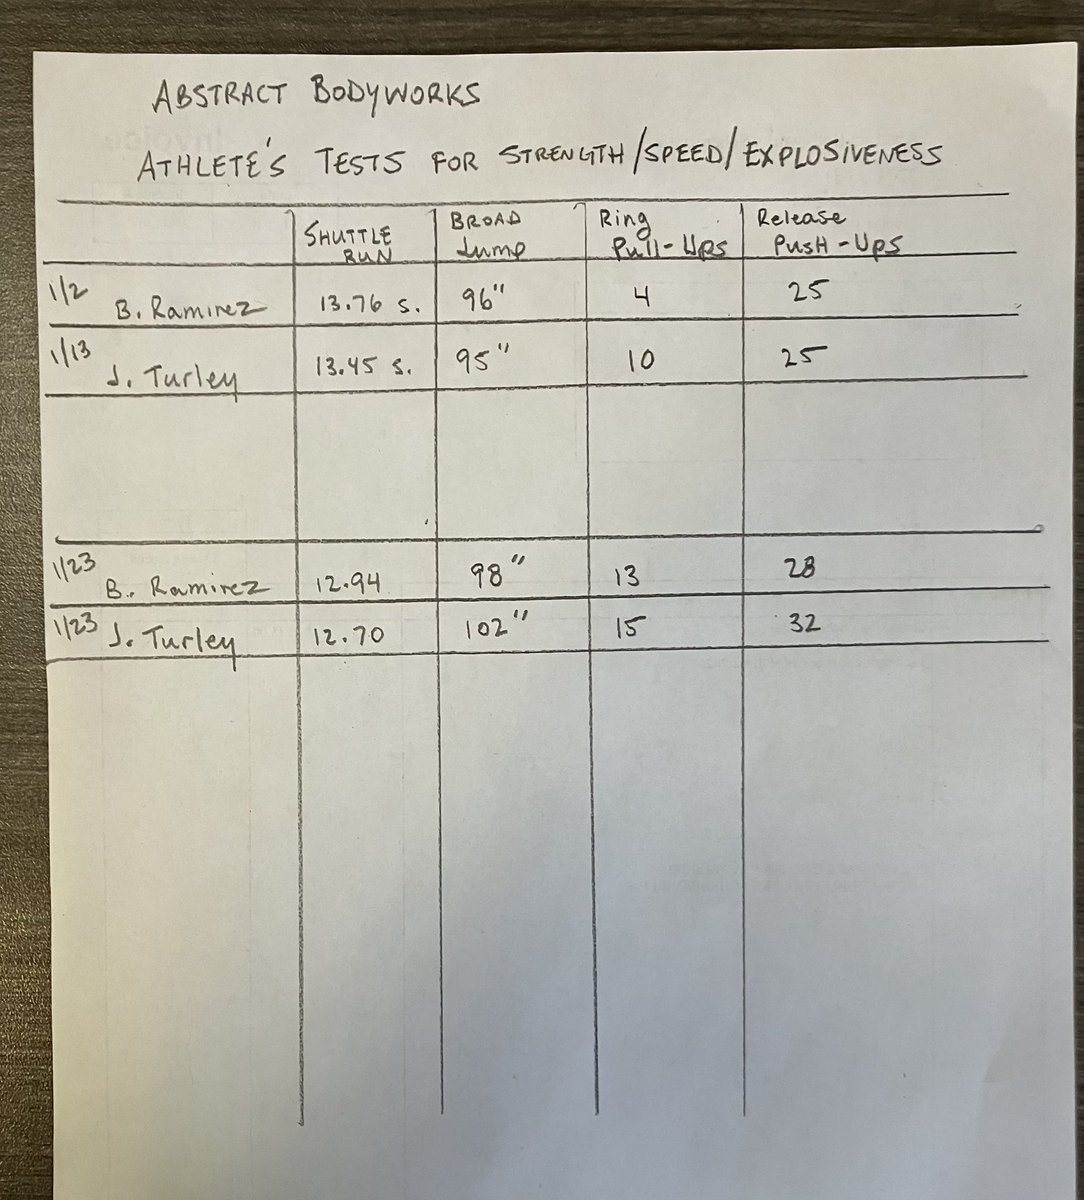 ABSTRACT BODYWORKS
ATHLETE'S TESTS FOR STRENGTH/SPEED/EXPLOSIVENESS
SHUTTLE RUN BROAD Jump Ring Pull-Ups Release PusH-Ups
1/2 B. Ramirez 13.76 s. 96" 4 25
1/13 J. Turley 13.45 s. 95" 10 25
1/23 B. Ramirez 12.94 98" 13 28
1/23 J. Turley 12.70 102" 15 32